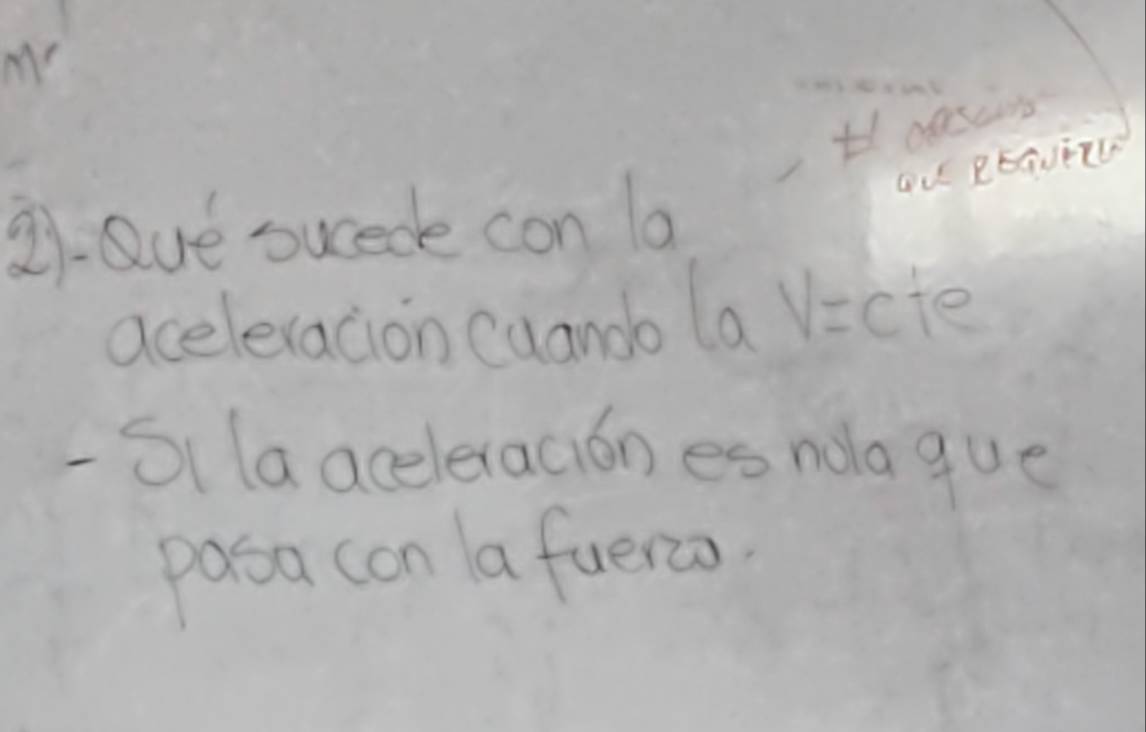 2).- Qué sucede con la
aceleración cuando la V=cte
- Si la aceleración es nula que
pasa con la fuerza.